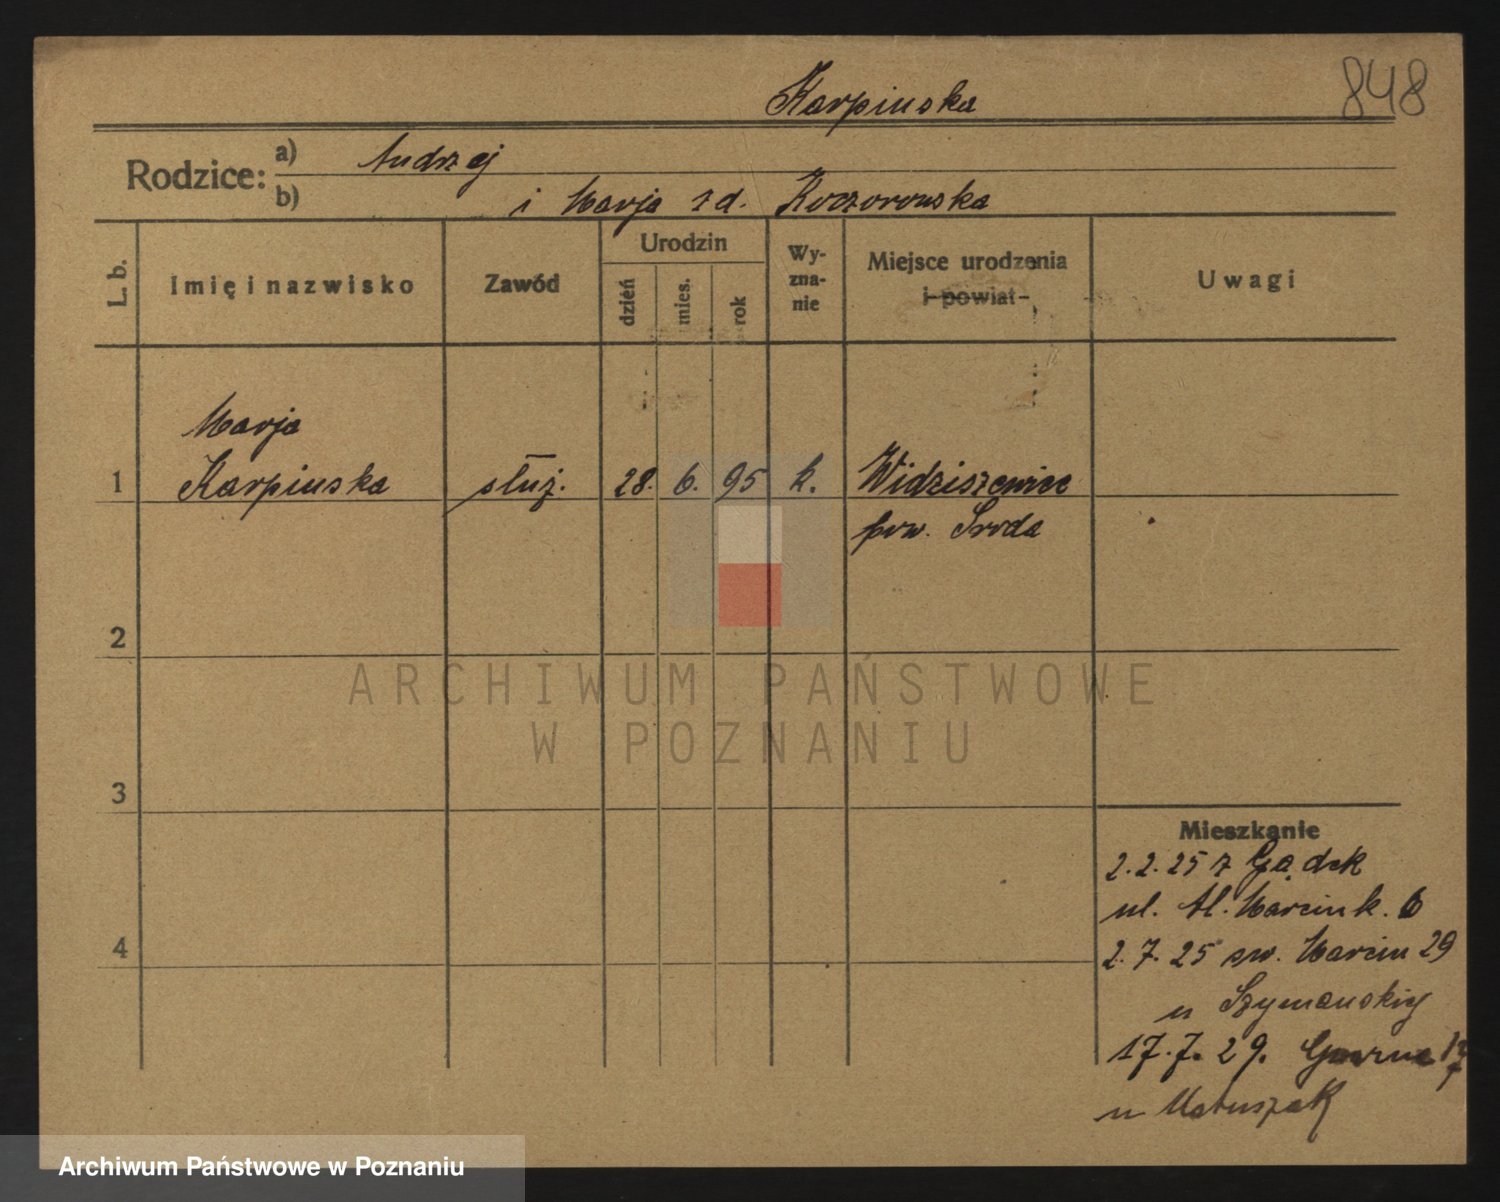 Karpinska
848
Rodzice:
a) Andrzej
b) i Marja zd. Koczorowska
L. b.
Imię i nazwisko
Zawód
Urodzin
dzień
mies.
rok
Wy-
zna-
nie
Miejsce urodzenia
i powiat
Uwagi
Marja
1 Karpinska służ. 28. 6. 95 k. Widziszewice
pow. Sroda
2
3
4
ARCHIWUM PAŃSTWOWE
W POZNANIU
Mieszkanie
2.2.25 z Gądek
ul. Al. Marcink. 6
2.7.25 sw. Marcin 29
u Szymanskiej
17.7.29.
u Matuszak
Archiwum Państwowe w Poznaniu